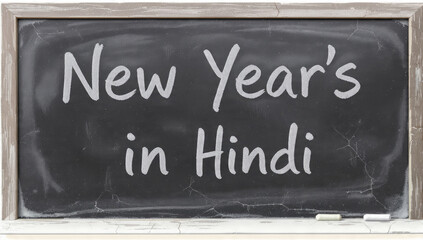 New Year's
in Hindi